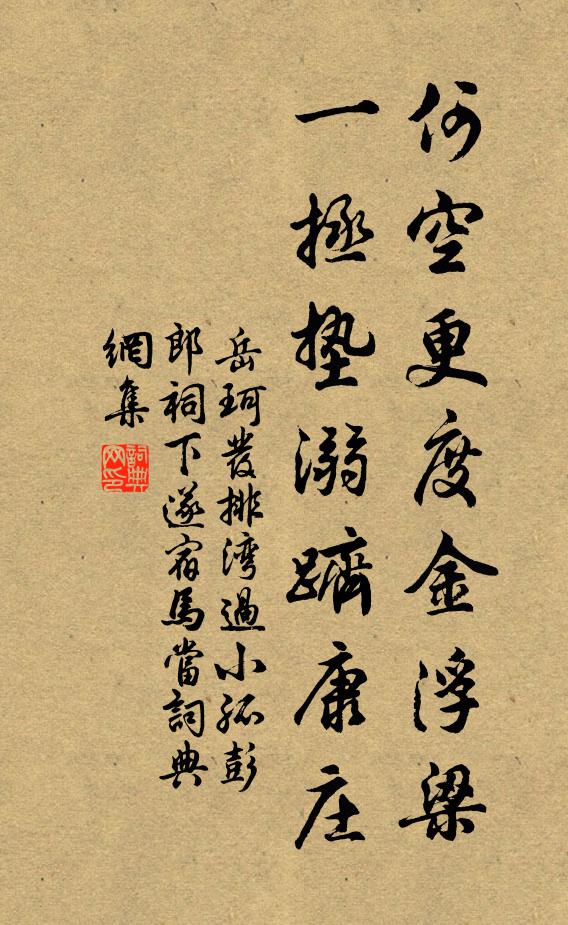 何空更度金浮梁
一拯垫溺躋康庄
岳珂發排湾過小孤彭
郎祠下遂宿馬當詞典
網集
詞典
网印